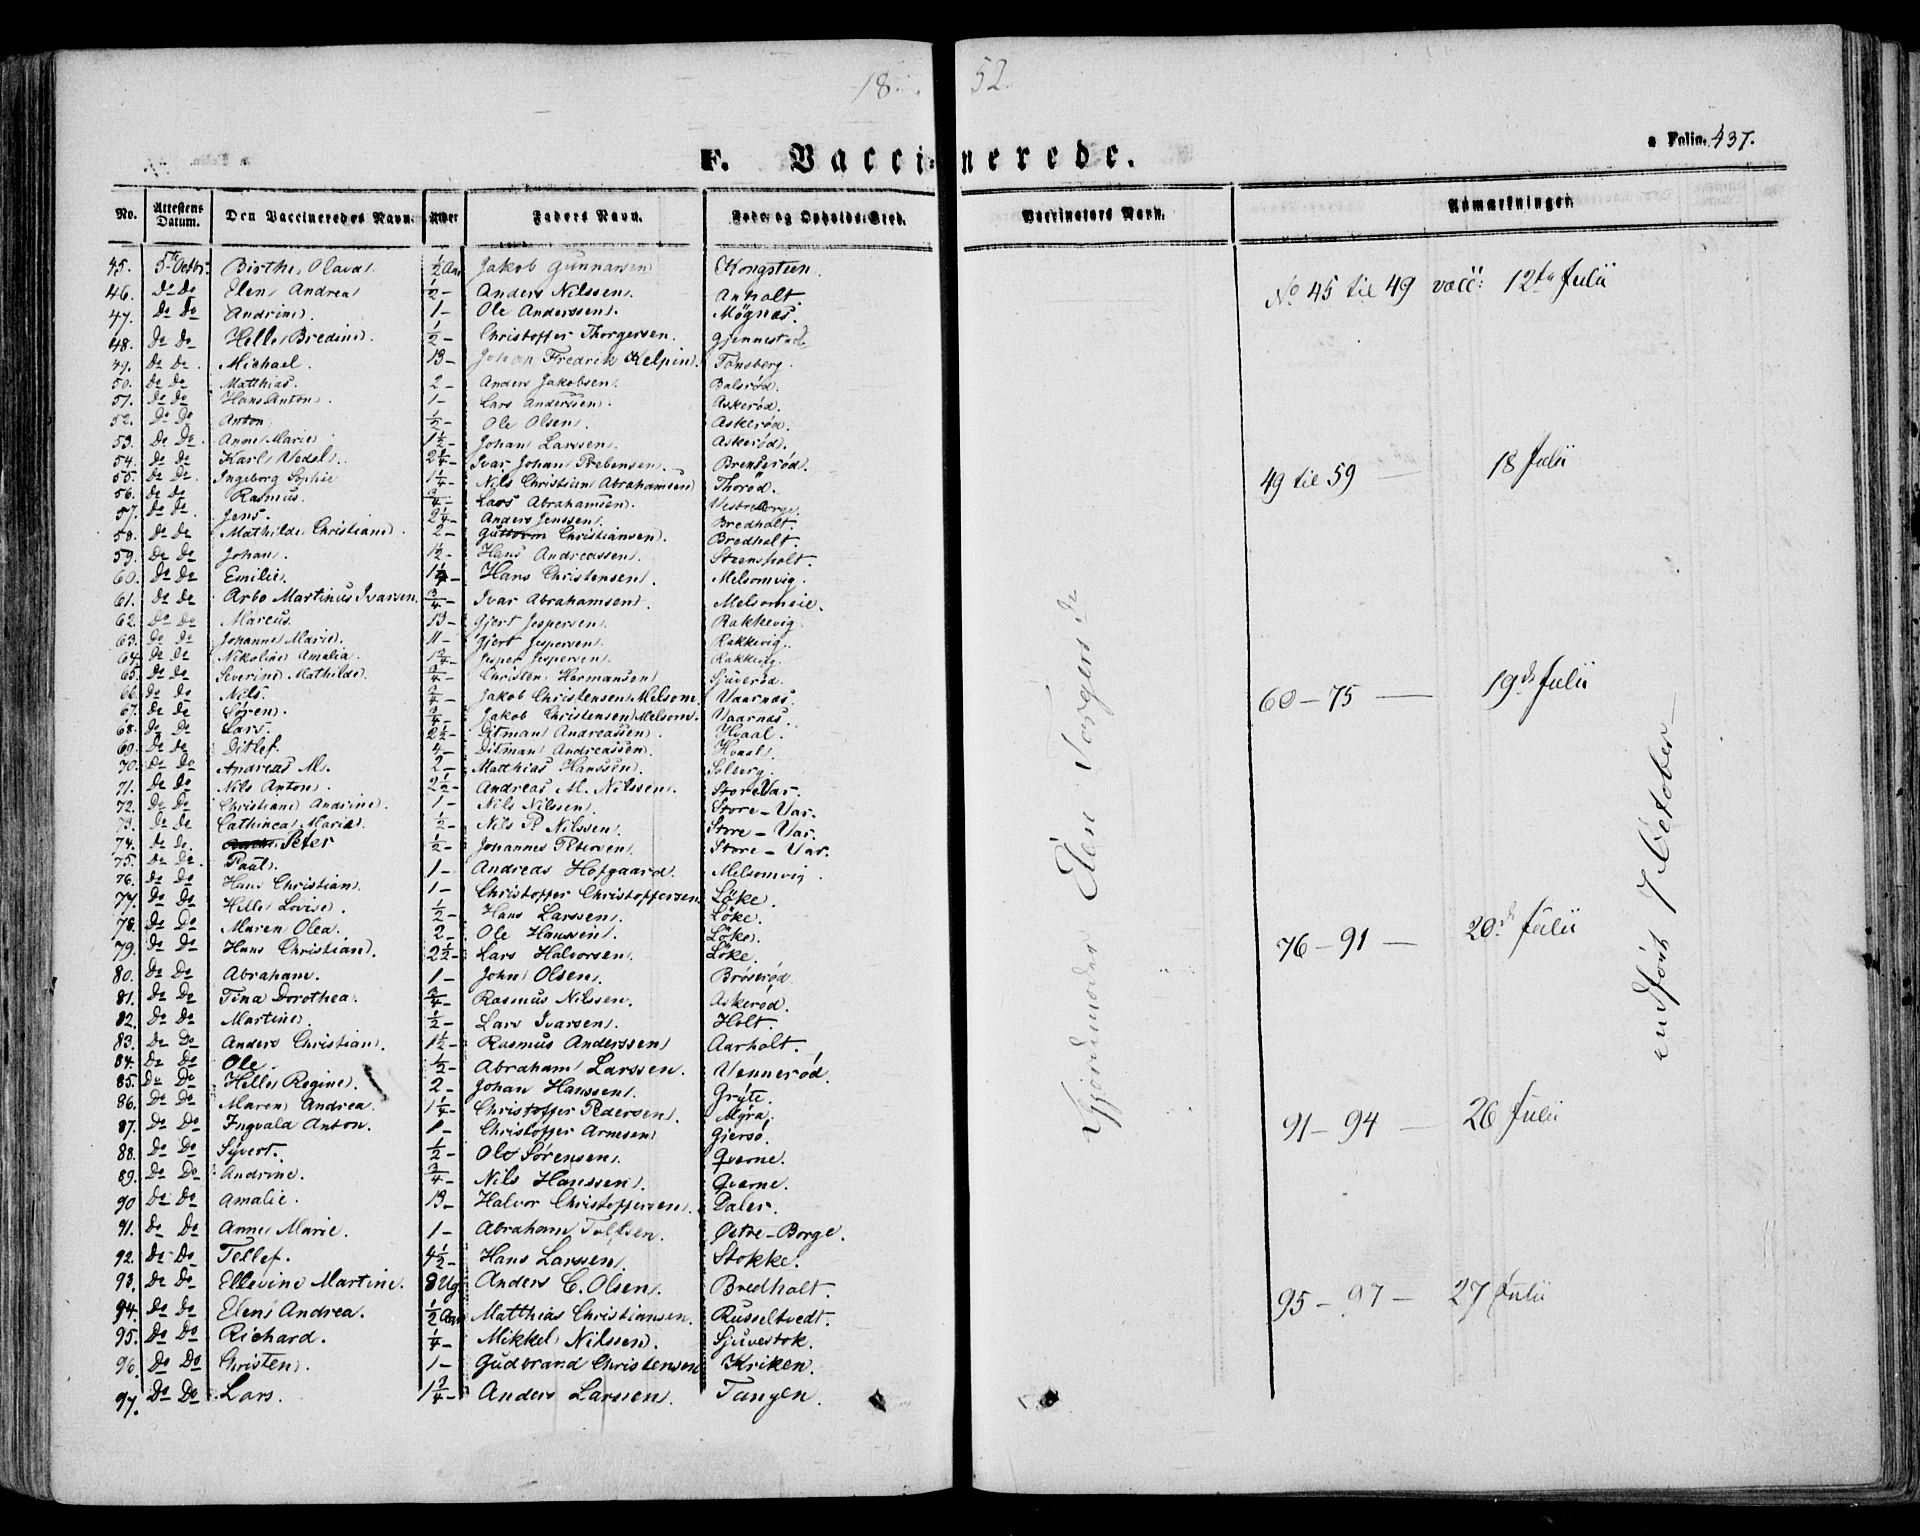 1852.
F. Vaccinerede.
a Folio. 437.
No. Attestens Datum. Den Vaccineredes Navn. Alder Faders Navn. Føde- og Opholds-Sted. Vaccinators Navn. Anmærkninger.
45. 5te Octbr. Birthe Olava. 1/2 Aar Jakob Gunnarsen Kongsteen.
46. Do Do Elen Andrea 1/2 - Anders Nilssen. Anholt.
47. Do Do Andrine. 1 - Ole Anderssen. Mögnæs.
48. Do Do Helle Bredine. 1/2 - Christoffer Thorgersen. Gjennestad
49. Do Do Michael. 13 - Johan Fredrik Kelpin. Tønsberg.
50. Do Do Matthias. 2 - Anders Jakobsen. Balsrød.
51. Do Do Hans Anton. 1 - Lars Anderssen. Askerød.
52. Do Do Anton 1/2 - Ole Olsen. Askerød.
53. Do Do Anne Marie 1 1/2 - Johan Larssen. Askerød.
54. Do Do Karl Vedel. 2 1/4 - Ivar Johan Prebensen. Brenserød.
55. Do Do Ingeborg Sophie 1 1/4 - Nils Christian Abrahamsen Thorød.
56. Do Do Rasmus. 3/4 - Lars Abrahamsen. Vestre Borge.
57. Do Do Jens. 2 1/4 - Anders Jenssen. Bredholt.
58. Do Do Mathilde Christiane. 2 - Guttorm Christiansen. Bredholt.
59. Do Do Johan. 1 1/2 - Hans Andreassen. Steensholt.
60. Do Do Emilie. 1 1/4 - Hans Christensen. Melsomvig.
61. Do Do Arbo Martinus Ivarsen. 3/4 - Ivar Abrahamsen. Melsomvie.
62. Do Do Marcus. 13 - Gjert Jespersen. Rakkevig.
63. Do Do Johanne Marie. 11 - Gjert Jespersen. Rakkevig.
64. Do Do Nikoline Amalia. 1 3/4 - Jesper Jespersen. Rakkevig.
65. Do Do Severine Mathilde. 3/4 - Christen Hermansen. Sjuverød.
66. Do Do Nils. 3/4 - Jakob Christensen Melsom. Vaarnæs.
67. Do Do Søren. 3/4 - Jakob Christensen Melsom. Vaarnæs.
68. Do Do Lars. 2 1/2 - Ditman Andreassen. Hvaal.
69. Do Do Ditlef. 4 - Ditman Andreassen. Hvaal.
70. Do Do Andreas M. 2 - Matthias Hanssen. Solberg.
71. Do Do Nils Anton. 2 1/2 - Andreas M. Nilssen. Store Var.
72. Do Do Christiane Andrine. 1 - Nils Nilssen. Store - Var.
73. Do Do Cathinca Maria. 1/2 - Nils P. Nilssen. Store - Var.
74. Do Do Peter 1/2 - Johannes Petersen. Store - Var.
75. Do Do Paul. 1 - Andreas Hofgaard. Melsomvig
76. Do Do Hans Christian. 1 - Christoffer Christoffersen. Löke.
77. Do Do Helle Lovise. 1/2 - Hans Larssen. Löke.
78. Do Do Maren Olea. 2 - Ole Hanssen. Löke.
79. Do Do Hans Christian. 2 1/2 - Lars Halvorsen. Löke.
80. Do Do Abraham. 1 - John Olsen. Brøserød.
81. Do Do Tina Dorothea. 3/4 - Rasmus Nilssen. Askerød.
82. Do Do Martine. 1/2 - Lars Ivarsen. Holt.
83. Do Do Anders Christian. 1 1/2 - Rasmus Anderssen Aarholt.
84. Do Do Ole. 1/2 - Abraham Larssen. Vennerød.
85. Do Do Helle Regine. 2 - Johan Hanssen. Gryte.
86. Do Do Maren Andrea. 1 1/4 - Christoffer Pedersen. Myra.
87. Do Do Ingvald Anton. 1 - Christoffer Arnesen Gjersö.
88. Do Do Syvert. 1/2 - Ole Sørensen. Qverne.
89. Do Do Andrine. 3/4 - Nils Hanssen. Qverne.
90 Do Do Amalie. 13 - Halvor Christoffersen. Daler.
91. Do Do Anne Marie. 1 - Abraham Tollefsen. Østre-Borge.
92. Do Do Tellef. 4 1/2 - Hans Larssen. Stokke.
93. Do Do Ellevine Martine. 8 Ug. Anders C. Olsen. Bredholt.
94. Do Do Elen Andrea. 1/2 Aar Matthias Christiansen. Russeltvedt.
95. Do Do Richard. 1/4 - Mikkel Nilssen. Sjuvestok.
96. Do Do Christen. 1 - Gudbrand Christensen Kriken.
97. Do Do Lars. 1 3/4 - Anders Larssen. Tangen.
Gjordemoder Elen Torgersd
No 45 til 49 vacc: 12te Julii
49 til 59 — 18 Julii
60 — 75 — 19de Julii
76 — 91 — 20d Julii
91 — 94 — 26 Julii
95 — 97 — 27 Julii
indført 7 October —